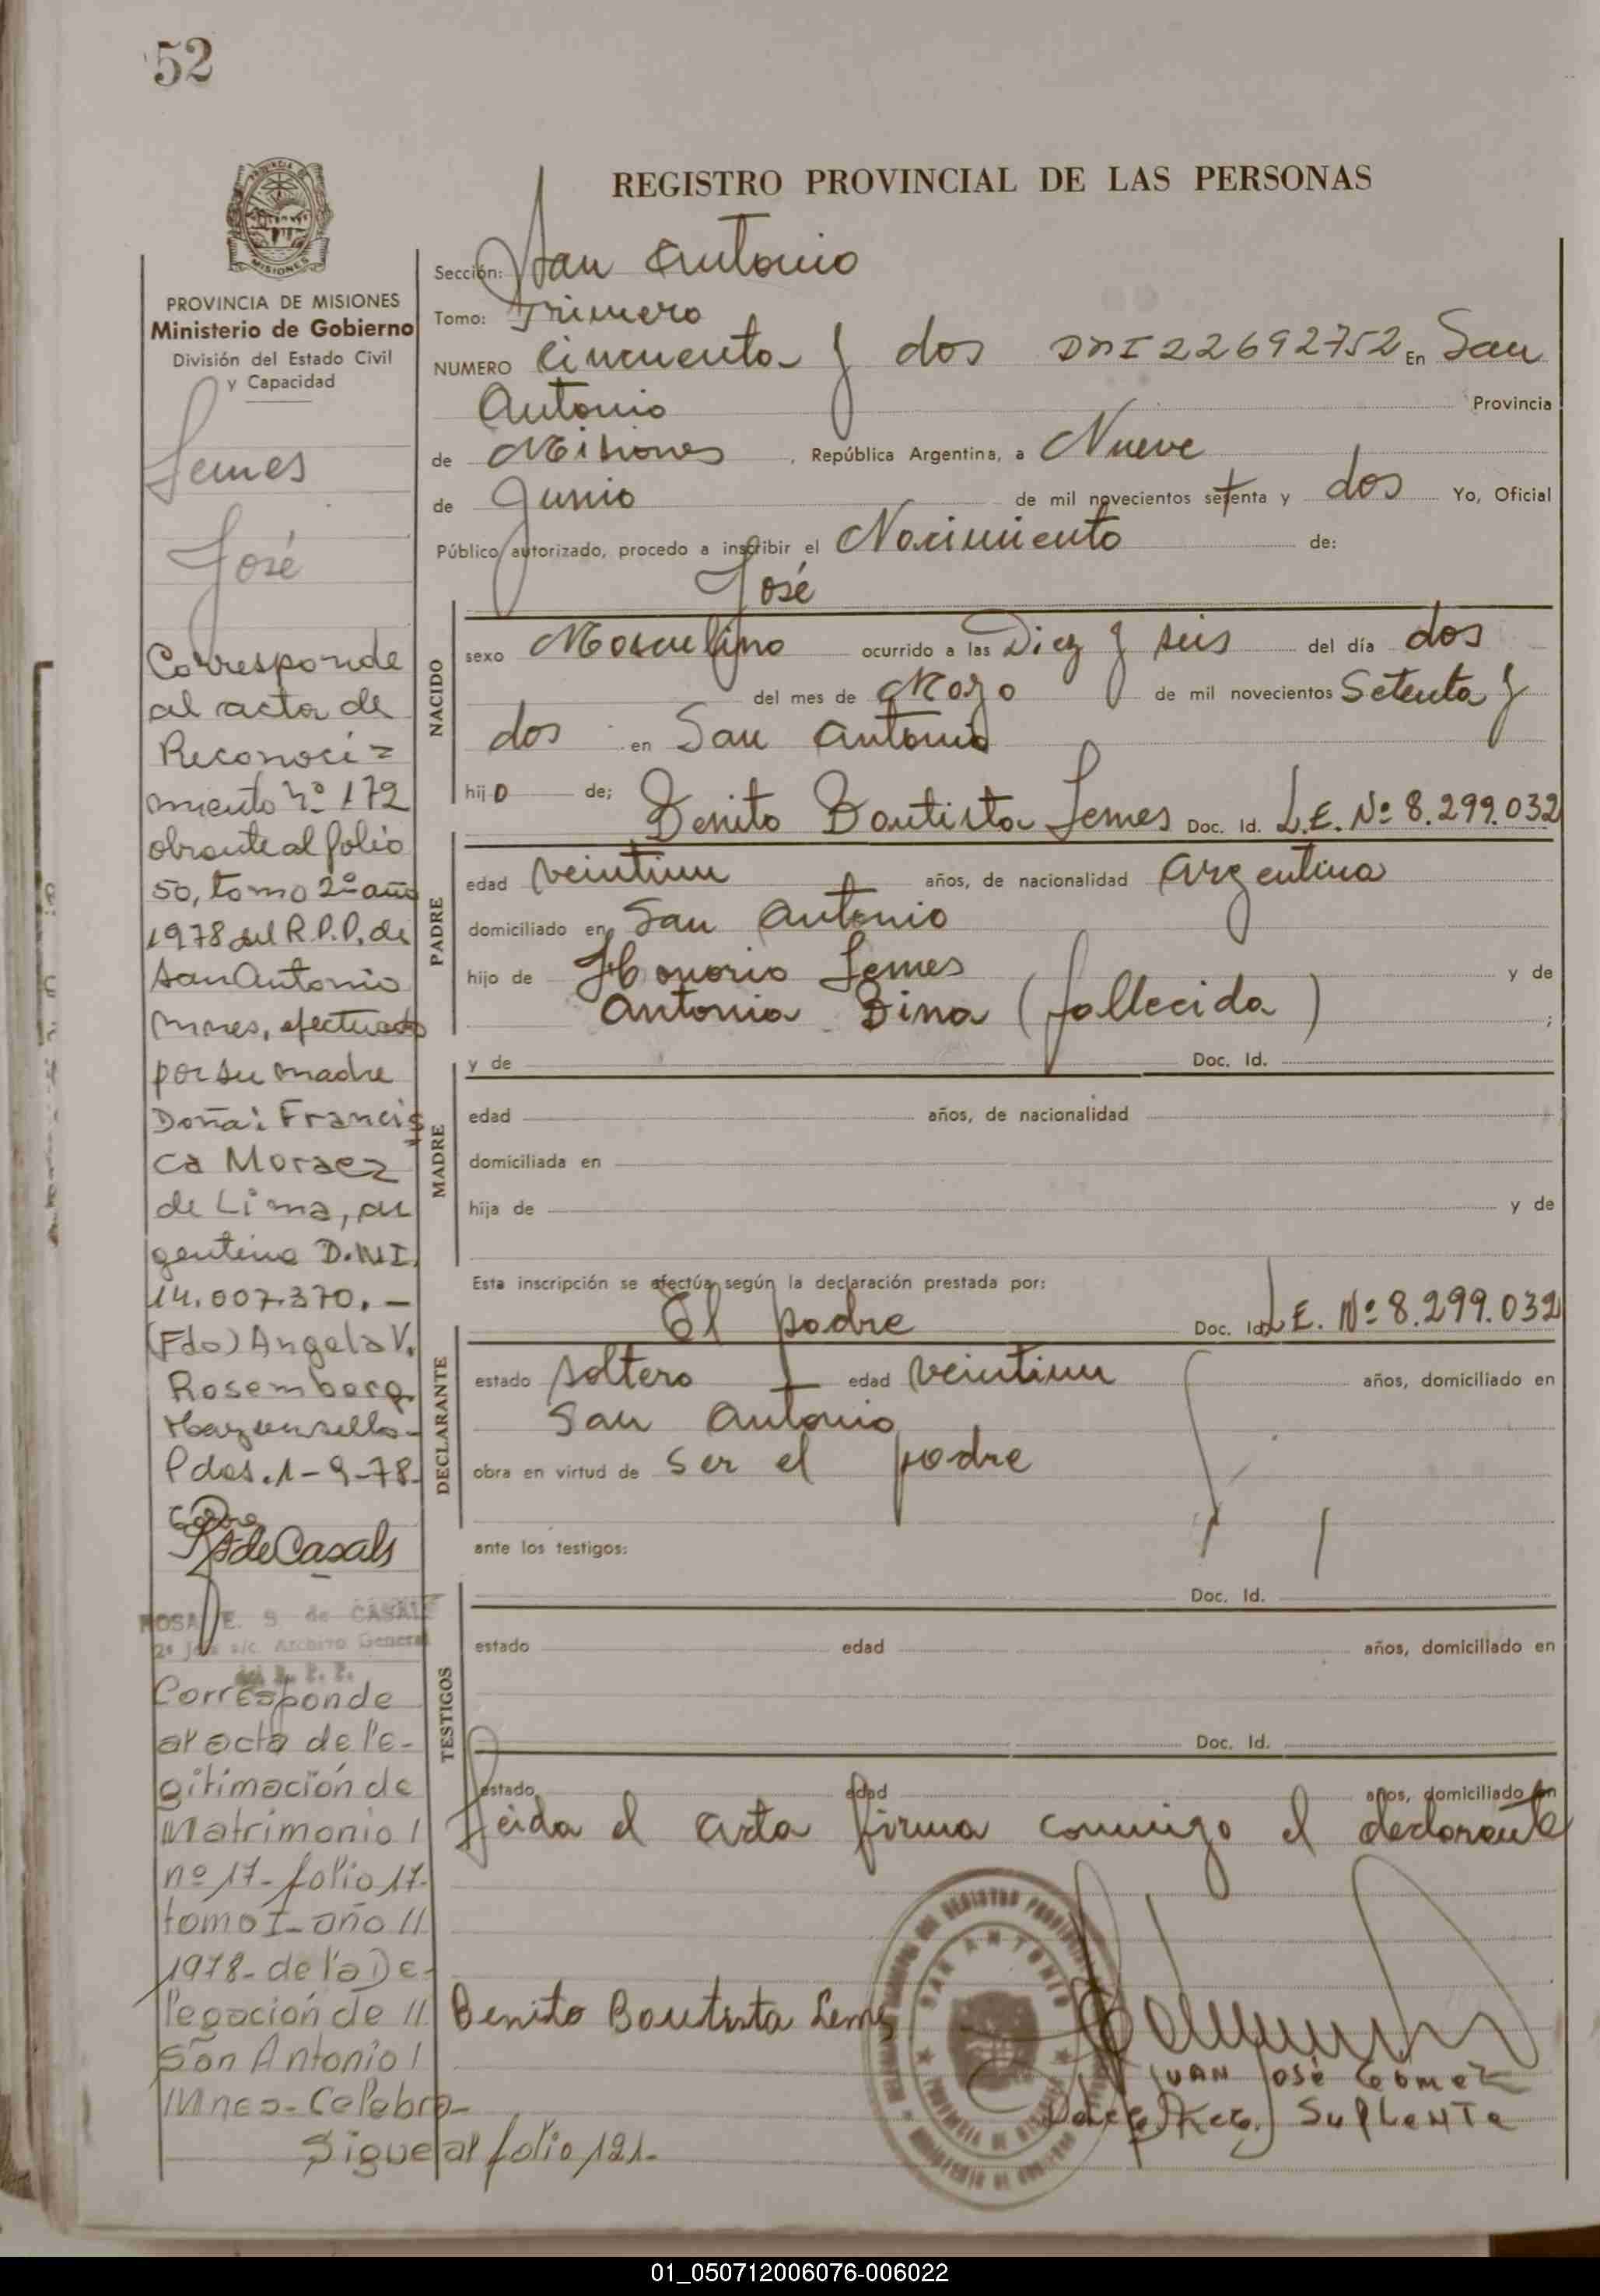 52
REGISTRO PROVINCIAL DE LAS PERSONAS
MISIONES
PROVINCIA DE MISIONES
Ministerio de Gobierno
División del Estado Civil
y Capacidad
Lemes
José
Corresponde
al acta de
Reconoci=
miento nº 172
obrante al folio
50, tomo 2º año
1978 del R.P.P. de
San Antonio
Mnes, efectuado
por su madre
Doña: Francis
ca Moraez
de Lima, ar
gentina D.N.I.
14.007.370.-
(Fdo) Angela V.
Rosemberg
Pdas. 1-9-78.
R de Casals
ROSA E. S de CASALS
2º Jefe a/c. Archivo General
del R. P. P.
Corresponde
al acta de le-
gitimación de
Matrimonio
nº 17- folio 17-
tomo I- año
1978- de la De-
legación de
San Antonio
Mnes- Celebro-
Sigue al folio 121.-
Sección: San Antonio
Tomo: Primero
NUMERO Cincuenta y dos DNI 22692752 En San
Antonio Provincia
de Misiones , República Argentina, a Nueve
de Junio de mil novecientos setenta y dos Yo, Oficial
Público autorizado, procedo a inscribir el Nacimiento de:
José
NACIDO
sexo Masculino ocurrido a las Diez y seis del día dos
del mes de Mayo de mil novecientos Setenta y
dos en San Antonio
hijo de; Benito Bautista Lemes Doc. Id. L.E. Nº 8.299.032
PADRE
edad veintiun años, de nacionalidad Argentina
domiciliado en San Antonio
hijo de Honorio Lemes y de
Antonia Bina (fallecida) ;
y de Doc. Id.
MADRE
edad años, de nacionalidad
domiciliada en
hija de y de
Esta inscripción se efectúa según la declaración prestada por:
El padre Doc. Id. L.E. Nº 8.299.032
DECLARANTE
estado soltero edad veintiun años, domiciliado en
San Antonio
obra en virtud de ser el padre
ante los testigos:
Doc. Id.
TESTIGOS
estado edad años, domiciliado en
Doc. Id.
estado edad años, domiciliado en
Leida el acta firma conmigo el declarante
Benito Bautista Lemes
SAN ANTONIO
PROVINCIA DE MISIONES
JUAN José Gómez
Suplente
01_050712006076-006022